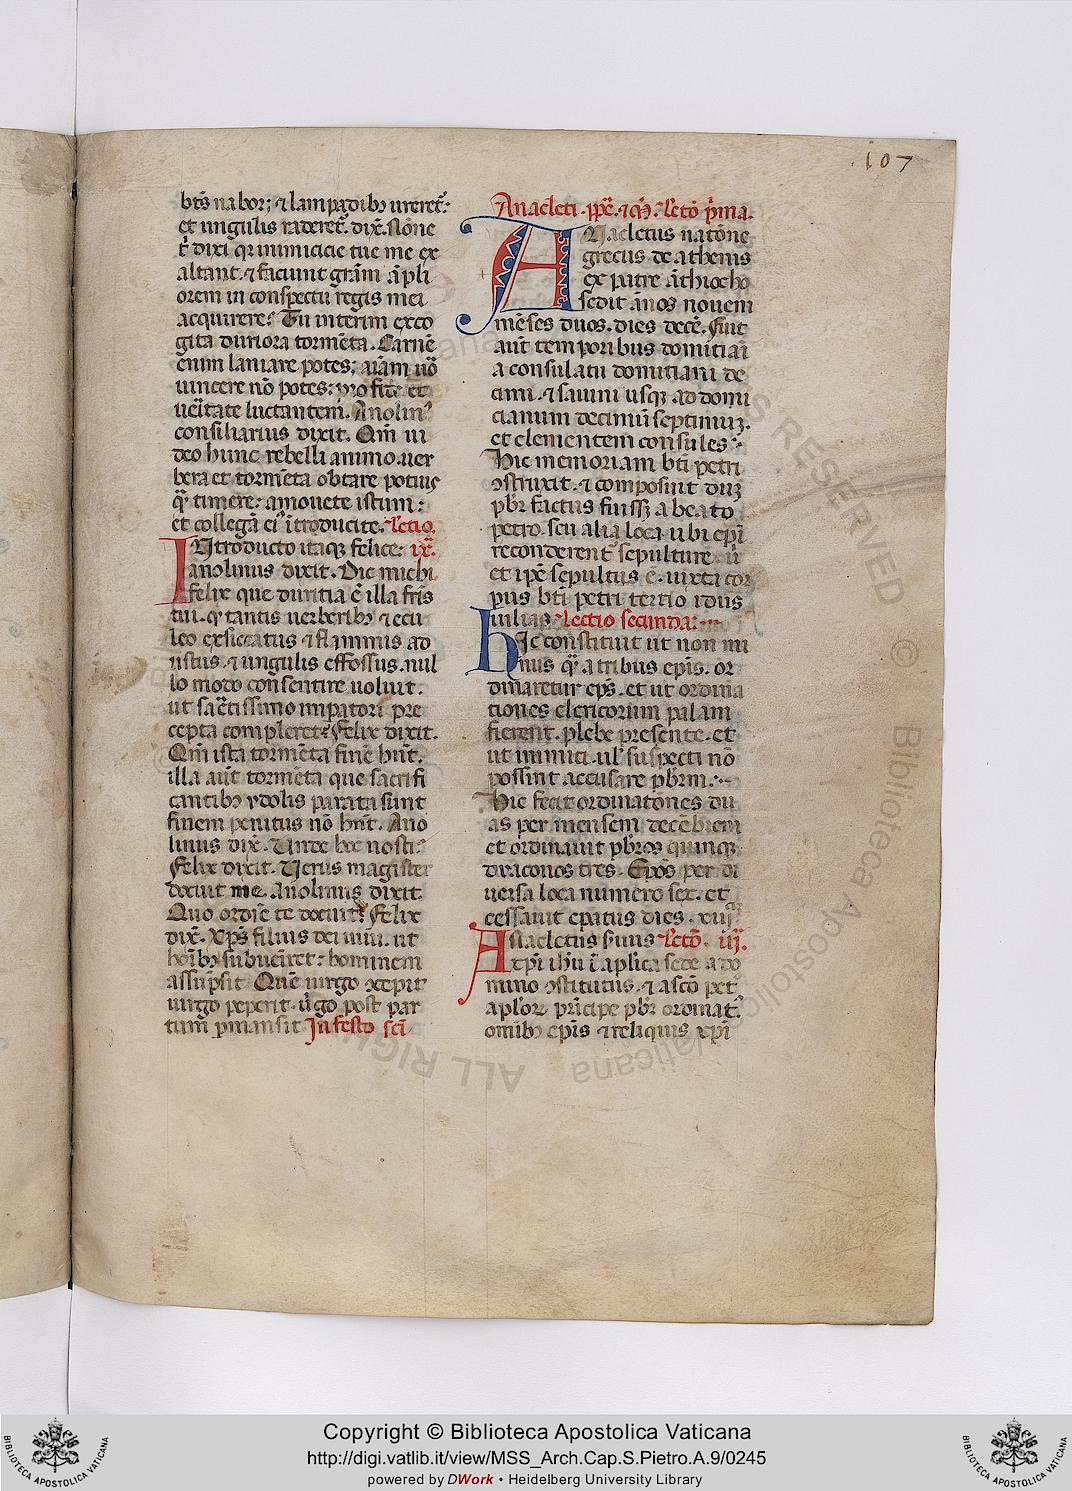 .107
bt̄s nabor; ⁊ lampadibꝫ ureret᷑.
et ungulis raderet᷑. dix̄. Nōne
t̄ dixi qꝛ inimicicie tue me ex
altant. ⁊ faciunt gr̄am āpli
orem in conspectu regis mei
acquirere. Tu interim exco
gita duriora tormēta. Carnē
enim laniare potes; aīam uō
uincere nō potes; pro fide et
ueritate luctantem. Anolin᷒
consiliarius dixit. Qm̄ ui
deo hunc rebelli animo. uer
bera et tormēta obtare potius
q̄ timere: amouete istum:
et collegā ei᷒ ītroducite. Letio
INtroducto itaqꝫ felice: ix̄.
anolinus dixit. Dic michi
felix que duritia ē illa fr̄is
tui. qꝛ tantis uerberibꝫ ⁊ ecu
leo exsiccatus ⁊ flammis ad
ustus. ⁊ ungulis effossus. nul
lo modo consentire uoluit.
ut sacr̄tissimo imp̄atori pre
cepta compleret: Felix dixit.
Qm̄ ista tormēta finē hn̄t.
illa aūt tormēta que sacrifi
cantibꝫ ydolis parata sunt
finem penitus nō hn̄t. Ano
linus dix̄. Unde hec nosti:
Felix dixit. Uerus magister
docuit me. Anolinus dixit.
Quo ordīe te docuit: Felix
dix̄. Xp̄s filius dei uiui. ut
hoībꝫ subueīret: hominem
assūpsit Quē uirgo ꝯcepit
uirgo peperit. ūgo post par
tum ꝑmansit In festo sc̄i
Anacleti. pp̄e. ⁊ m̄. Letō p̄ma.
ANacletus natōne
grecus de athenis
ex patre āthiocho
sedit ānos nouem
mēses duos. dies decē. fuit
aūt temporibus domitiaī
a consulatu domitiani de
cimi. ⁊ sauini usqꝫ ad domi
cianum decimū septimuꝫ.
et clementem consules:
Hic memoriam bt̄i petri
ꝯstruxit. ⁊ composuit duꝫ
pb̄r factus fuissꝫ a beato
petro. seu alia loca ubi ep̄i
reconderent᷑ sepulture. ū
et ip̄e sepultus ē. iuxta cor
pus bt̄i petri tertio idus
iulias Lectio secunda:
hIc constituit ut non mi
nus q̄ a tribus ep̄is. or
dinaretur ep̄s. et ut ordina
tiones clericorum palam
fierent. plebe presente. et
ut inimici. ul᷒ suspecti nō
possint accusare pb̄rm:
Hic fecit ordinatōnes du
as per mensem decēbrem
et ordinauit pb̄ros quinqꝫ
diaconos tres. Ep̄os per di
uersa loca numero sex. et
cessauit ep̄atus dies. xiij
ANacletus seruus Letō. iij.
xp̄i ih̄u ī aplica sede a do
mino ꝯstitutus. ⁊ a sc̄o pet᷑
apl̄oꝝ prīcipe pb̄r ordinat᷒.
omībꝫ ep̄is ⁊ reliquis xp̄i
Copyright © Biblioteca Apostolica Vaticana
http://digi.vatlib.it/view/MSS_Arch.Cap.S.Pietro.A.9/0245
powered by DWork • Heidelberg University Library
BIBLIOTECA APOSTOLICA VATICANA
BIBLIOTECA APOSTOLICA VATICANA